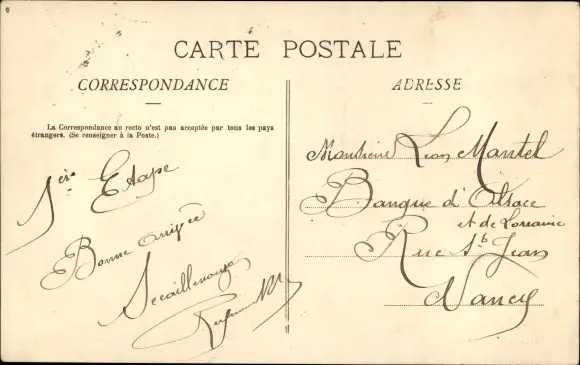 6
CARTE POSTALE
CORRESPONDANCE
ADRESSE
La Correspondance au recto n'est pas acceptée par tous les pays
étrangers. (Se renseigner à la Poste.)
1ère Etape
Bonne arrivée
Monsieur Léon Mantel
Banque d'Alsace
et de Lorraine
Rue St Jean
Nancy